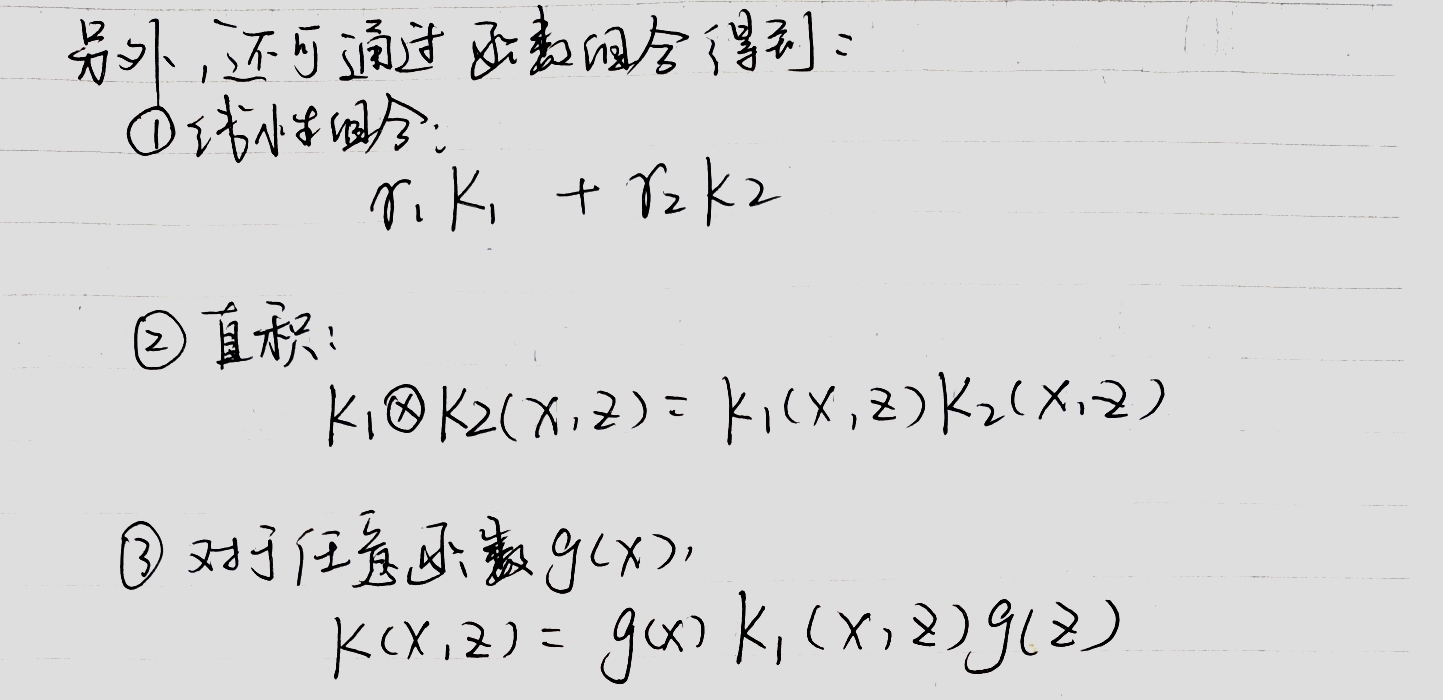 另外,还可通过函数组合得到:
① 线性组合:
γ₁K₁ + γ₂K2
② 直积:
K₁⊗K2(x,z) = K₁(x,z)K₂(x,z)
③ 对于任意函数g(x),
K(x,z) = g(x) K₁(x,z)g(z)